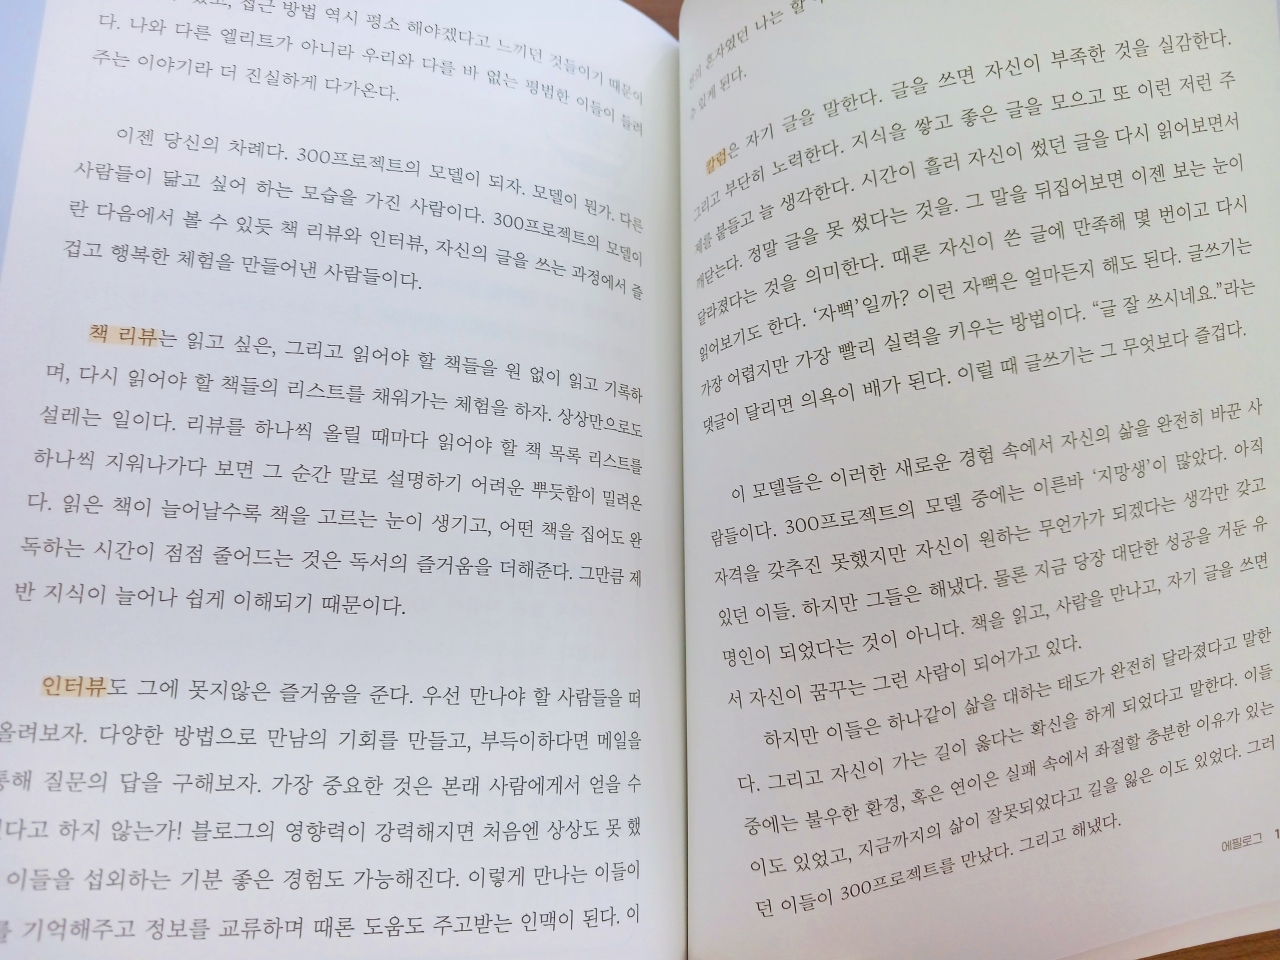 있고, 접근 방법 역시 평소 해야겠다고 느끼던 것들이기 때문이
다. 나와 다른 엘리트가 아니라 우리와 다를 바 없는 평범한 이들이 들려
주는 이야기라 더 진실하게 다가온다.
이젠 당신의 차례다. 300프로젝트의 모델이 되자. 모델이 뭔가. 다른
사람들이 닮고 싶어 하는 모습을 가진 사람이다. 300프로젝트의 모델이
란 다음에서 볼 수 있듯 책 리뷰와 인터뷰, 자신의 글을 쓰는 과정에서 즐
겁고 행복한 체험을 만들어낸 사람들이다.
책 리뷰는 읽고 싶은, 그리고 읽어야 할 책들을 원 없이 읽고 기록하
며, 다시 읽어야 할 책들의 리스트를 채워가는 체험을 하자. 상상만으로도
설레는 일이다. 리뷰를 하나씩 올릴 때마다 읽어야 할 책 목록 리스트를
하나씩 지워나가다 보면 그 순간 말로 설명하기 어려운 뿌듯함이 밀려온
다. 읽은 책이 늘어날수록 책을 고르는 눈이 생기고, 어떤 책을 집어도 완
독하는 시간이 점점 줄어드는 것은 독서의 즐거움을 더해준다. 그만큼 제
반 지식이 늘어나 쉽게 이해되기 때문이다.
인터뷰도 그에 못지않은 즐거움을 준다. 우선 만나야 할 사람들을 떠
올려보자. 다양한 방법으로 만남의 기회를 만들고, 부득이하다면 메일을
통해 질문의 답을 구해보자. 가장 중요한 것은 본래 사람에게서 얻을 수
있다고 하지 않는가! 블로그의 영향력이 강력해지면 처음엔 상상도 못 했
이들을 섭외하는 기분 좋은 경험도 가능해진다. 이렇게 만나는 이들이
를 기억해주고 정보를 교류하며 때론 도움도 주고받는 인맥이 된다. 이
혼자였던 나는 할
수 있게 된다.
칼럼은 자기 글을 말한다. 글을 쓰면 자신이 부족한 것을 실감한다.
그리고 부단히 노력한다. 지식을 쌓고 좋은 글을 모으고 또 이런 저런 주
제를 붙들고 늘 생각한다. 시간이 흘러 자신이 썼던 글을 다시 읽어보면서
깨닫는다. 정말 글을 못 썼다는 것을. 그 말을 뒤집어보면 이젠 보는 눈이
달라졌다는 것을 의미한다. 때론 자신이 쓴 글에 만족해 몇 번이고 다시
읽어보기도 한다. ‘자뻑’일까? 이런 자뻑은 얼마든지 해도 된다. 글쓰기는
가장 어렵지만 가장 빨리 실력을 키우는 방법이다. “글 잘 쓰시네요.”라는
댓글이 달리면 의욕이 배가 된다. 이럴 때 글쓰기는 그 무엇보다 즐겁다.
이 모델들은 이러한 새로운 경험 속에서 자신의 삶을 완전히 바꾼 사
람들이다. 300프로젝트의 모델 중에는 이른바 ‘지망생’이 많았다. 아직
자격을 갖추진 못했지만 자신이 원하는 무언가가 되겠다는 생각만 갖고
있던 이들. 하지만 그들은 해냈다. 물론 지금 당장 대단한 성공을 거둔 유
명인이 되었다는 것이 아니다. 책을 읽고, 사람을 만나고, 자기 글을 쓰면
서 자신이 꿈꾸는 그런 사람이 되어가고 있다.
하지만 이들은 하나같이 삶을 대하는 태도가 완전히 달라졌다고 말한
다. 그리고 자신이 가는 길이 옳다는 확신을 하게 되었다고 말한다. 이들
중에는 불우한 환경, 혹은 연이은 실패 속에서 좌절할 충분한 이유가 있는
이도 있었고, 지금까지의 삶이 잘못되었다고 길을 잃은 이도 있었다. 그러
던 이들이 300프로젝트를 만났다. 그리고 해냈다.
에필로그 1